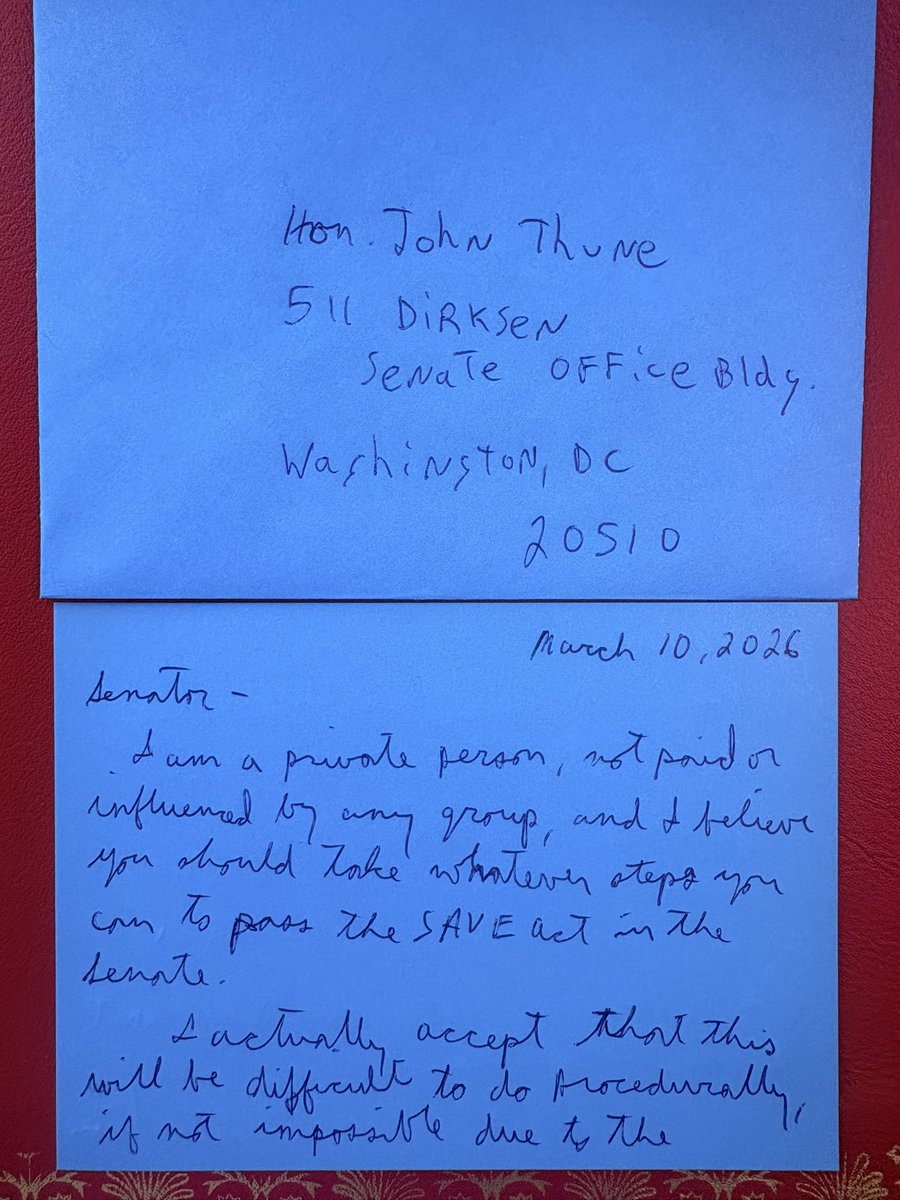 Hon. John Thune
511 Dirksen
Senate Office Bldg.
Washington, DC
20510
March 10, 2026
Senator -
I am a private person, not paid or
influenced by any group, and I believe
you should take whatever steps you
can to pass the SAVE act in the
Senate.
I actually accept that this
will be difficult to do procedurally,
if not impossible due to the